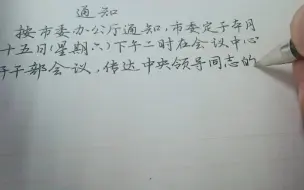 通知
按市委办公厅通知，市委定于本月
十五日(星期六)下午二时在会议中心
开干部会议，传达中央领导同志的